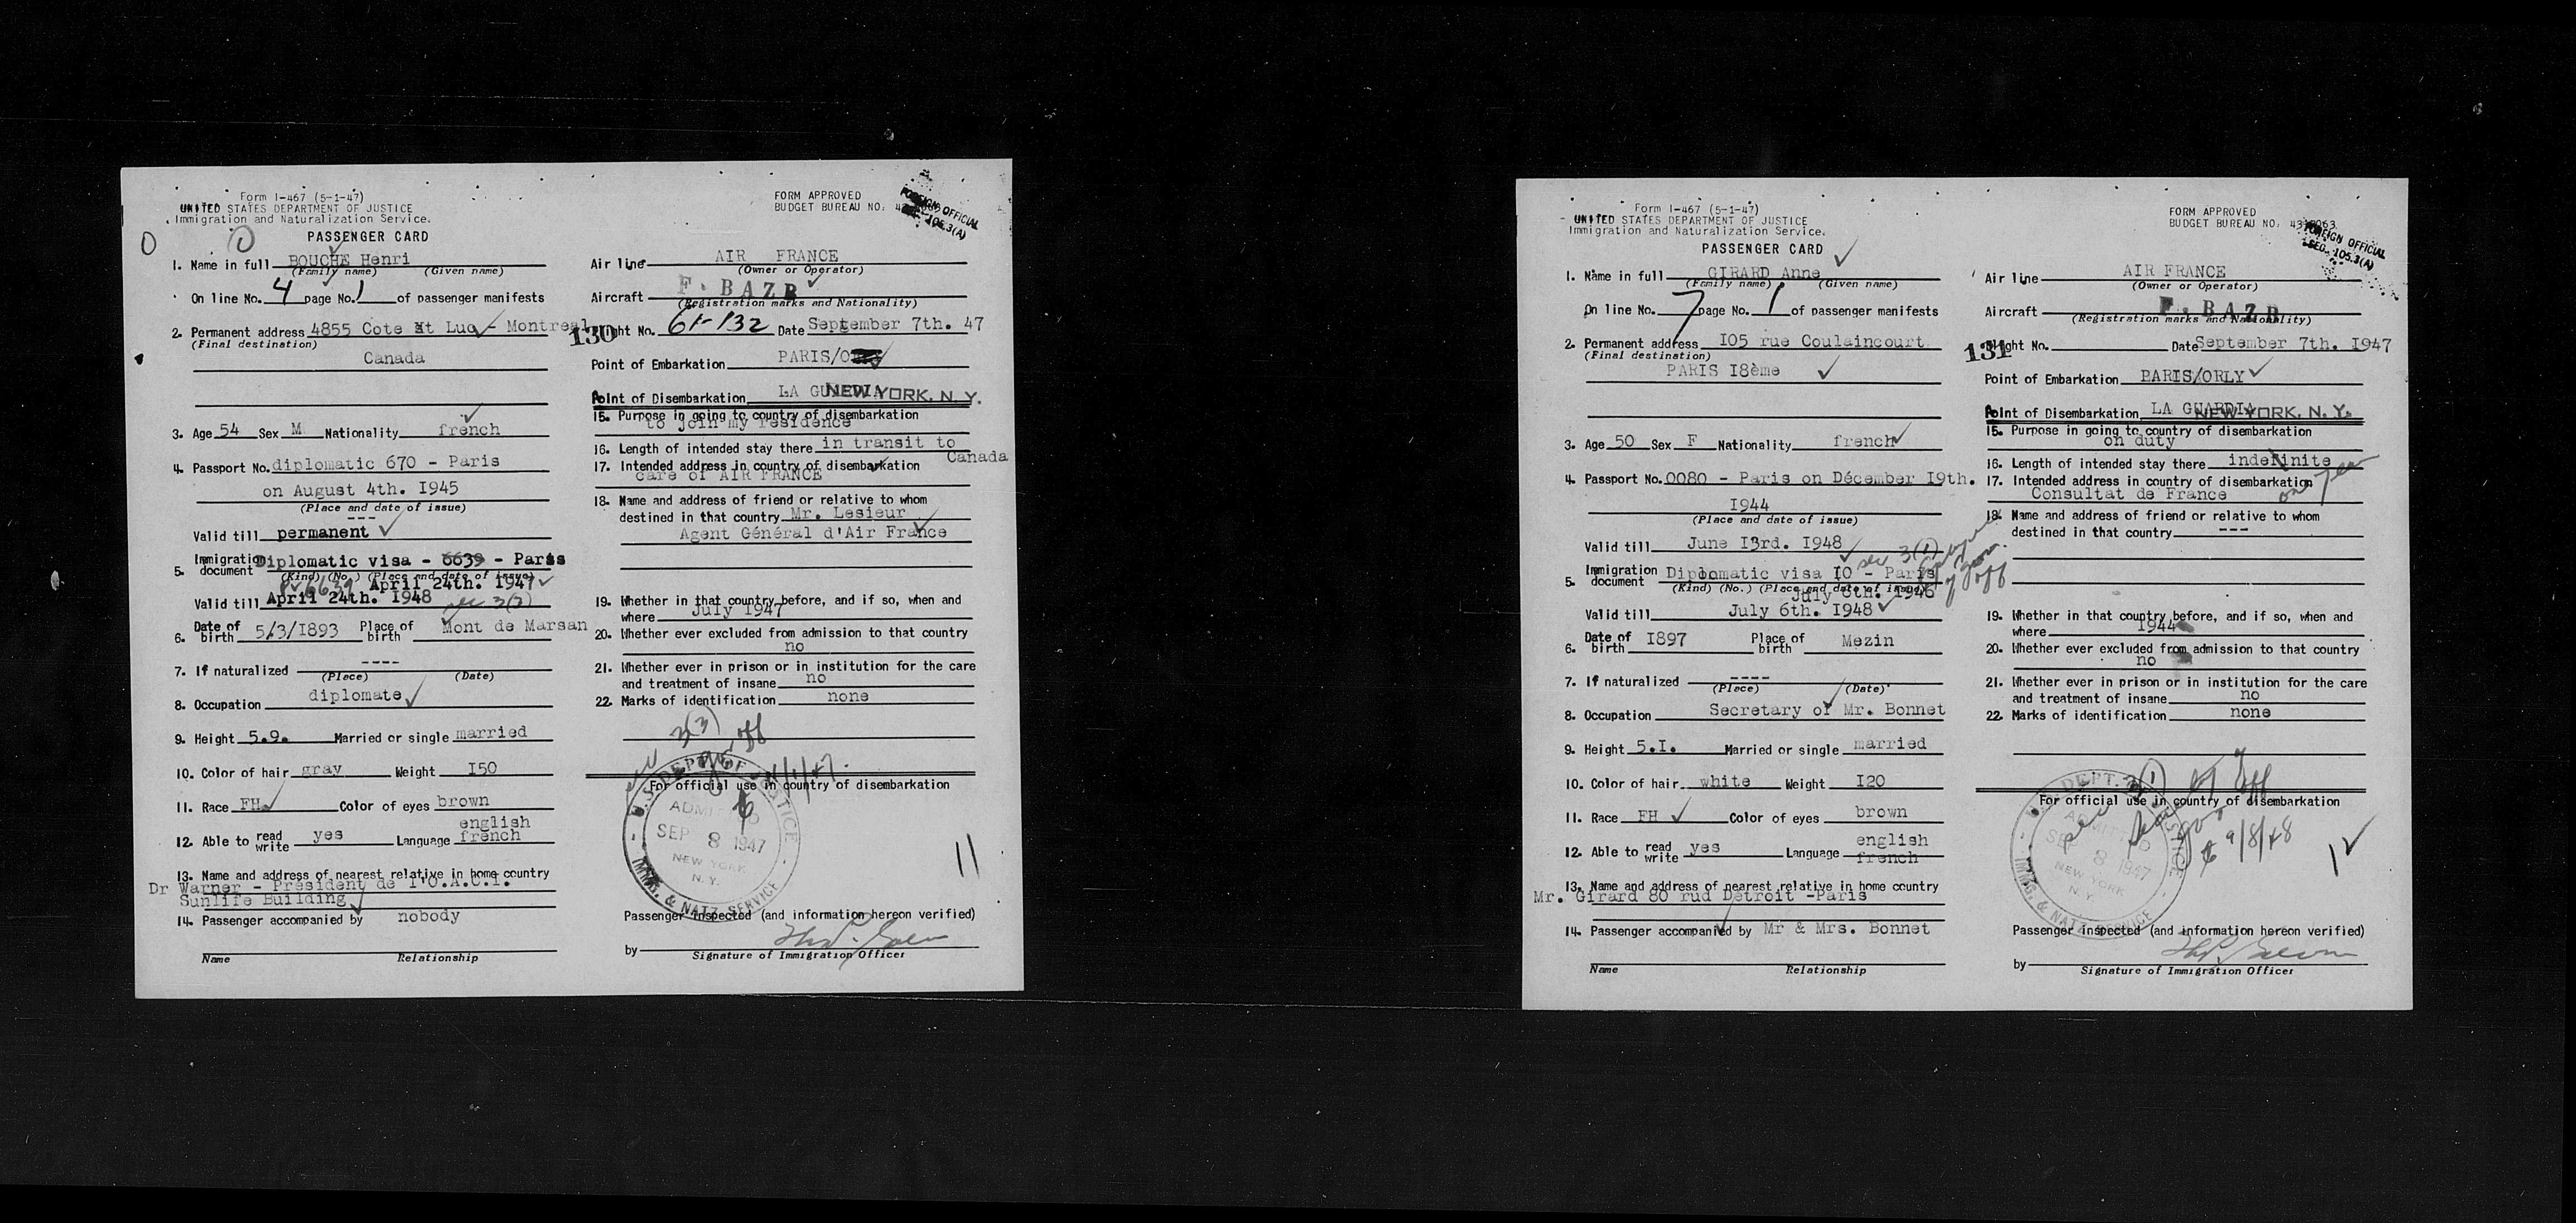 Form I-467 (5-1-47)
UNITED STATES DEPARTMENT OF JUSTICE
Immigration and Naturalization Service.
PASSENGER CARD
1. Name in full BOUCHE Henri
(Family name) (Given name)
On line No. 4 page No. 1 of passenger manifests
2. Permanent address 4855 Cote St Luc - Montreal
(Final destination)
Canada
3. Age 54 Sex M Nationality french
4. Passport No. diplomatic 670 - Paris
on August 4th. I945
(Place and date of issue)
Valid till permanent
5. Immigration document Diplomatic visa - 6639 - Paris
(Kind) (No.) (Place and date of issue)
6639 April 24th. 1947
Valid till April 24th. I948 sec 3(7)
6. Date of birth 5/3/I893 Place of birth Mont de Marsan
7. If naturalized ----
(Place) (Date)
8. Occupation diplomate
9. Height 5.9. Married or single married
10. Color of hair gray Weight I50
11. Race FH Color of eyes brown
12. Able to read write yes Language english french
13. Name and address of nearest relative in home country
Dr Warner - Président de l'O.A.C.I.
Sunlife Building
14. Passenger accompanied by nobody
Name Relationship
FORM APPROVED
BUDGET BUREAU NO.
FOREIGN OFFICIAL
SEC. 105.3(A)
Air line AIR FRANCE
(Owner or Operator)
Aircraft F. BAZB
(Registration marks and Nationality)
130
Flight No. 61-132 Date September 7th. 47
Point of Embarkation PARIS/
Point of Disembarkation LA GUARDIA NEW YORK, N. Y.
15. Purpose in going to country of disembarkation
to join my residence
16. Length of intended stay there in transit to
Canada
17. Intended address in country of disembarkation
care of AIR FRANCE
18. Name and address of friend or relative to whom
destined in that country Mr. Lesieur
Agent Général d'Air France
19. Whether in that country before, and if so, when and
where July 1947
20. Whether ever excluded from admission to that country
no
21. Whether ever in prison or in institution for the care
and treatment of insane no
22. Marks of identification none
3(7)
For official use in country of disembarkation
U.S. DEPT. OF JUSTICE
ADMITTED
SEP 8 1947
NEW YORK
N. Y.
IMMG. & NATZ. SERVICE
11
Passenger inspected (and information hereon verified)
by
Signature of Immigration Officer
Form I-467 (5-1-47)
UNITED STATES DEPARTMENT OF JUSTICE
Immigration and Naturalization Service.
PASSENGER CARD
1. Name in full GIRARD Anne
(Family name) (Given name)
On line No. 7 page No. 1 of passenger manifests
2. Permanent address I05 rue Coulaincourt
(Final destination)
PARIS I8ème
3. Age 50 Sex F Nationality french
4. Passport No. 0080 - Paris on Décember I9th.
I944
(Place and date of issue)
Valid till June I3rd. I948
sec 3(1)
5. Immigration document Diplomatic visa IO - Paris
(Kind) (No.) (Place and date of issue)
July 6th. I946
Valid till July 6th. I948
6. Date of birth I897 Place of birth Mezin
7. If naturalized ----
(Place) (Date)
8. Occupation Secretary of Mr. Bonnet
9. Height 5.I. Married or single married
10. Color of hair white Weight I20
11. Race FH Color of eyes brown
12. Able to read write yes Language english french
13. Name and address of nearest relative in home country
Mr. Girard 80 rud Detroit -Paris
14. Passenger accompanied by Mr & Mrs. Bonnet
Name Relationship
FORM APPROVED
BUDGET BUREAU NO.
FOREIGN OFFICIAL
SEC. 105.3(A)
Air line AIR FRANCE
(Owner or Operator)
Aircraft F. BAZB
(Registration marks and Nationality)
131
Flight No. Date September 7th. I947
Point of Embarkation PARIS/ORLY
Point of Disembarkation LA GUARDIA NEW YORK, N. Y.
15. Purpose in going to country of disembarkation
on duty
16. Length of intended stay there indefinite
one year
17. Intended address in country of disembarkation
Consultat de France
18. Name and address of friend or relative to whom
destined in that country ---
19. Whether in that country before, and if so, when and
where 1944
20. Whether ever excluded from admission to that country
no
21. Whether ever in prison or in institution for the care
and treatment of insane no
22. Marks of identification none
3(1)
For official use in country of disembarkation
U.S. DEPT. OF JUSTICE
ADMITTED
SEP 8 1947
NEW YORK
N. Y.
IMMG. & NATZ. SERVICE
9/8/48
Passenger inspected (and information hereon verified)
by
Signature of Immigration Officer